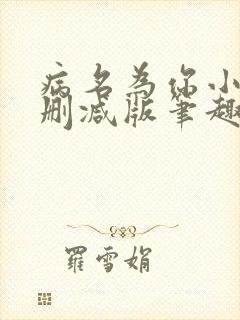 病名为你小
删减版笔趣
羅雪娟